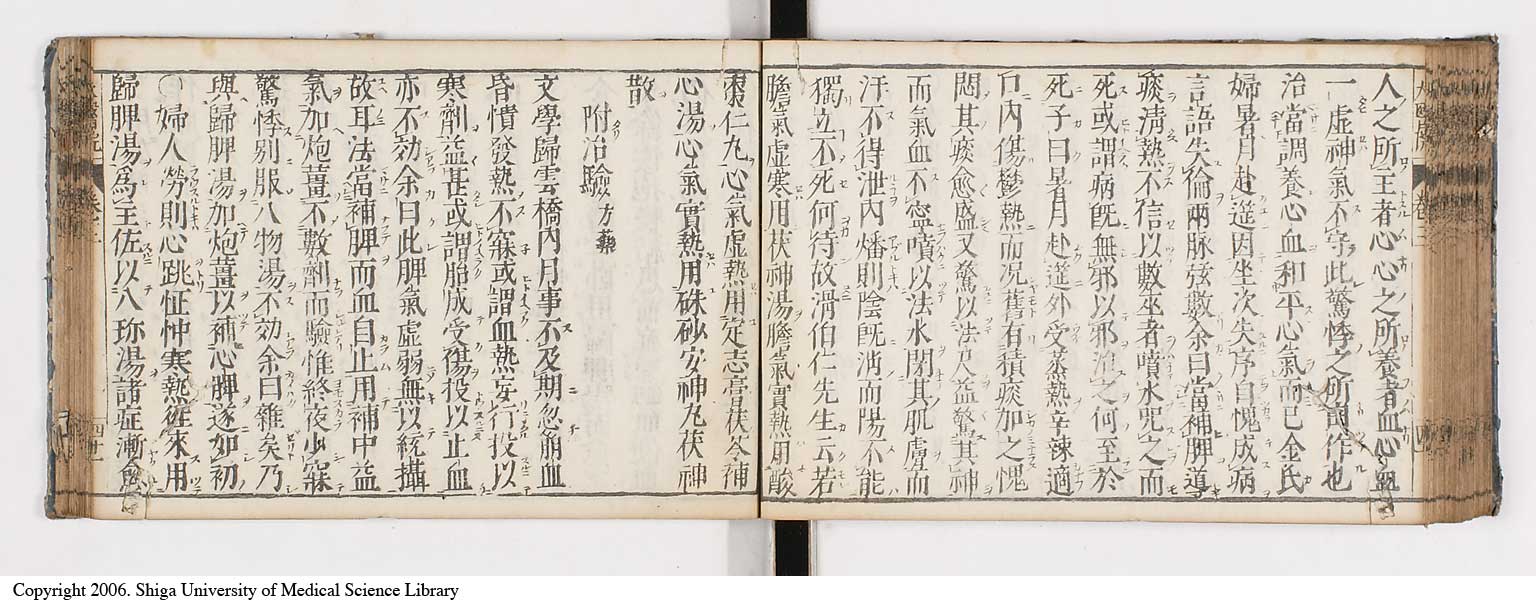 人之所主者心心之所養者血心血
一虛神氣不守此驚悸之所肇作也
治當調養心血和平心氣而已金氏
婦暑月赴筵因坐次失序自愧成病
言語失倫兩脉弦數余曰當補脾導
痰淸熱不信以數巫者噴水咒之而
死或謂病旣無邪以邪治之何至於
死予曰暑月赴筵外受蒸熱辛辣適
口內傷鬱熱而况舊有積痰加之愧
悶其痰愈盛又驚以法尺益驚其神
而血不寧噴以法水閉其肌膚而
汗不得泄內燔則陰旣消而陽不能
獨立不死何待故滑伯仁先生云若
膽氣虛寒用茯神湯膽氣實熱用酸
棗仁丸心氣虛熱用定志膏茯苓補
心湯心氣實熱用硃砂安神丸茯神
散
附治驗方藥
文學歸雲橋內月事不及期忽崩血
昏憒發熱不寐或謂血熱妄行投以
寒劑益甚或謂胎成受傷投以止血
亦不効余曰此脾氣虛弱無以統攝
故耳法當補脾而血自止用補中益
氣加炮薑不數劑而驗惟終夜少寐
驚悸別服八物湯不効余曰雜矣乃
與歸脾湯加炮薑以補心脾遂如初
〇婦人勞則心跳怔忡寒熱徃來用
歸脾湯爲主佐以八珎湯諸症漸愈
卷三
Copyright 2006. Shiga University of Medical Science Library